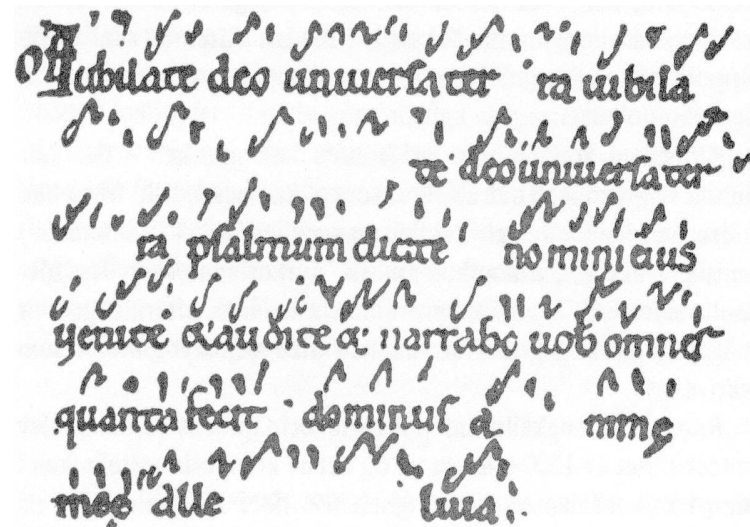 Iubilate deo uniuersa ter ra iubila
te deo uniuersa ter
ra psalmum dicite nomini eius
uenite & audite & narrabo uob omnis
quanta fecit dominus a nime
meę alle luia.